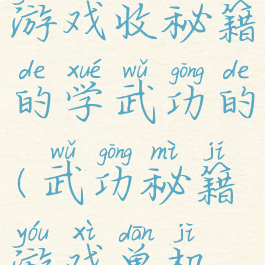 游戏收秘籍
de xué wǔ gōng de
的学武功的
wǔ gōng mì jí
(武功秘籍
yóu xì dān jī
游戏单机